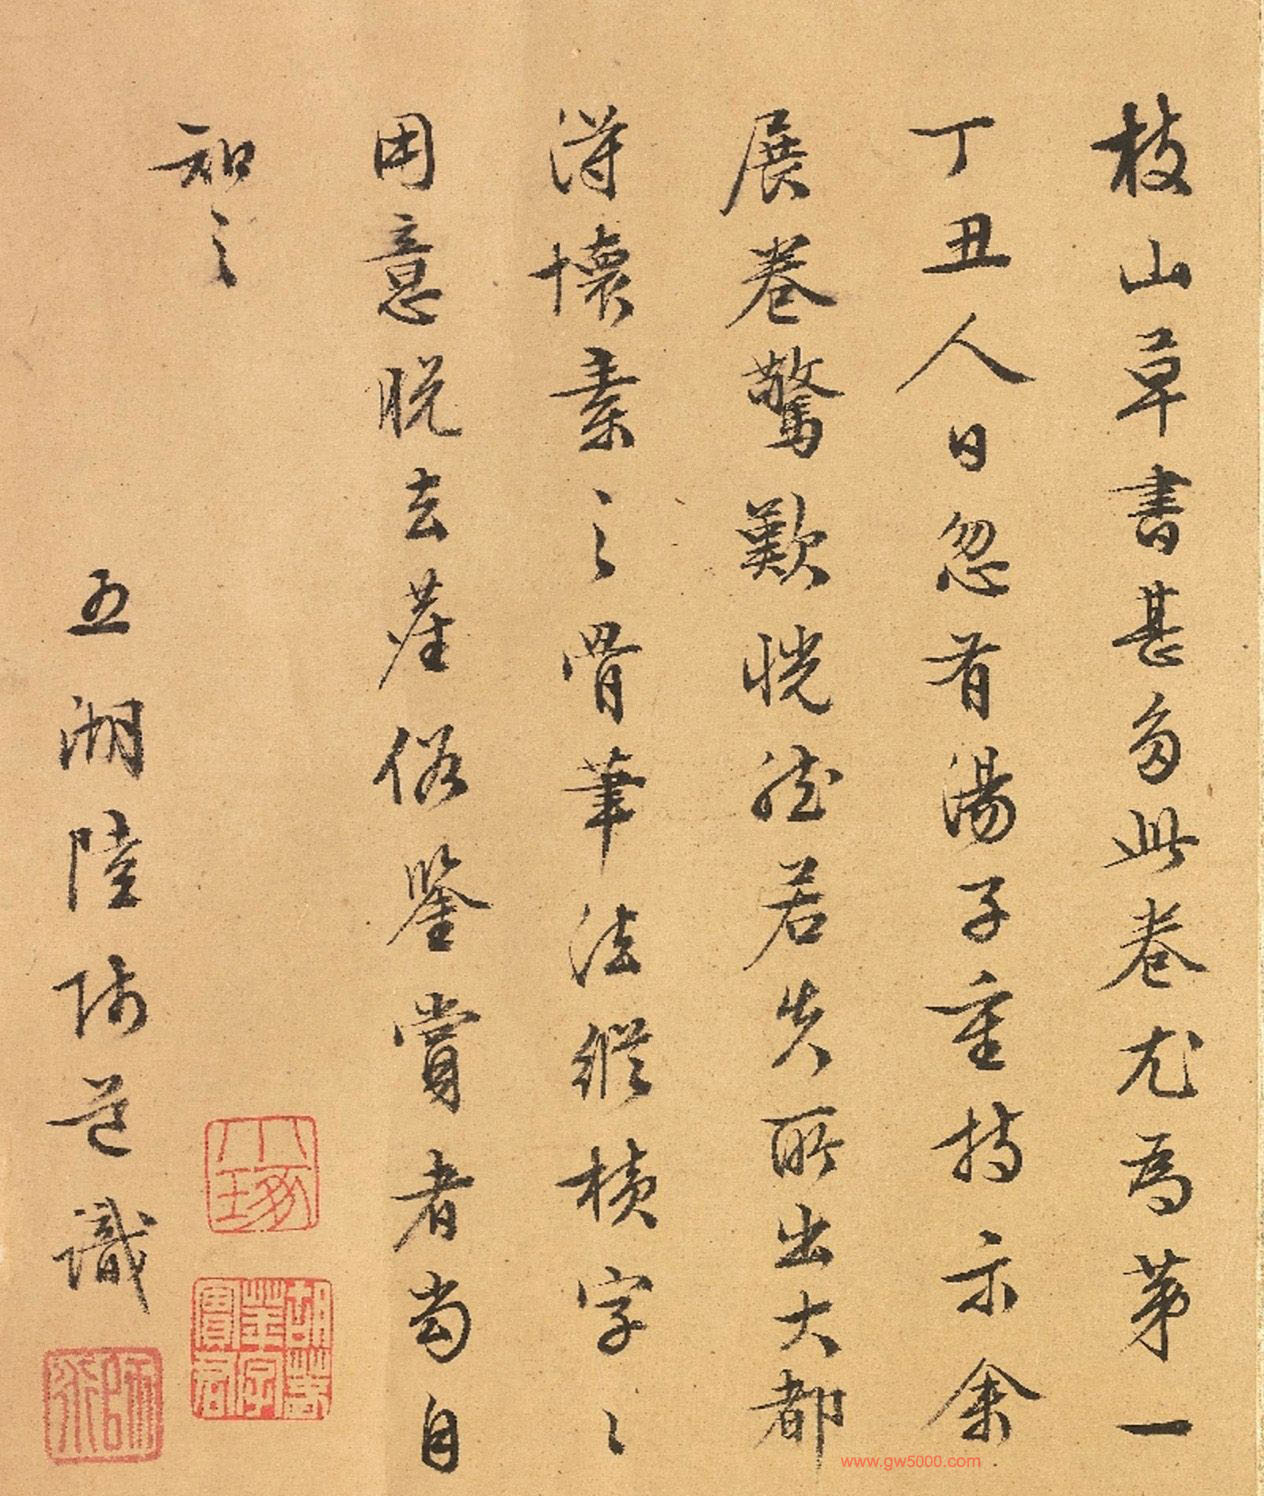 枝山草書甚多此卷尤為第一
丁丑人日忽有湯子重持示余
展卷驚歎恍然若失所出大都
得懷素之骨筆法縱橫字〻
用意脫去塵俗鑒賞者當自
知之
五湖陸師道識
www.gw5000.com